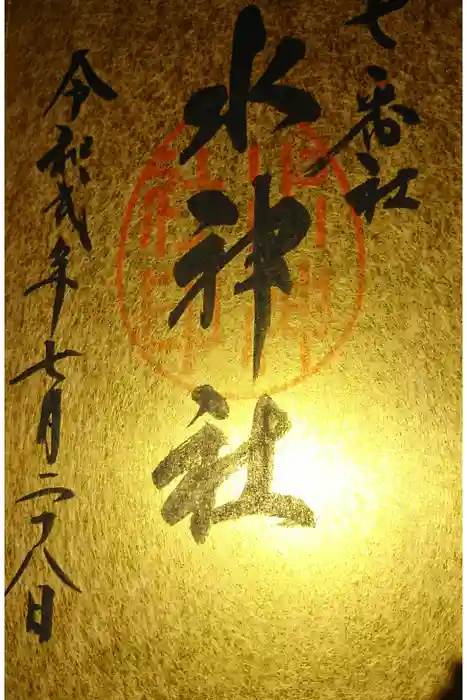 七番社
水神社
令和弐年七月二十八日